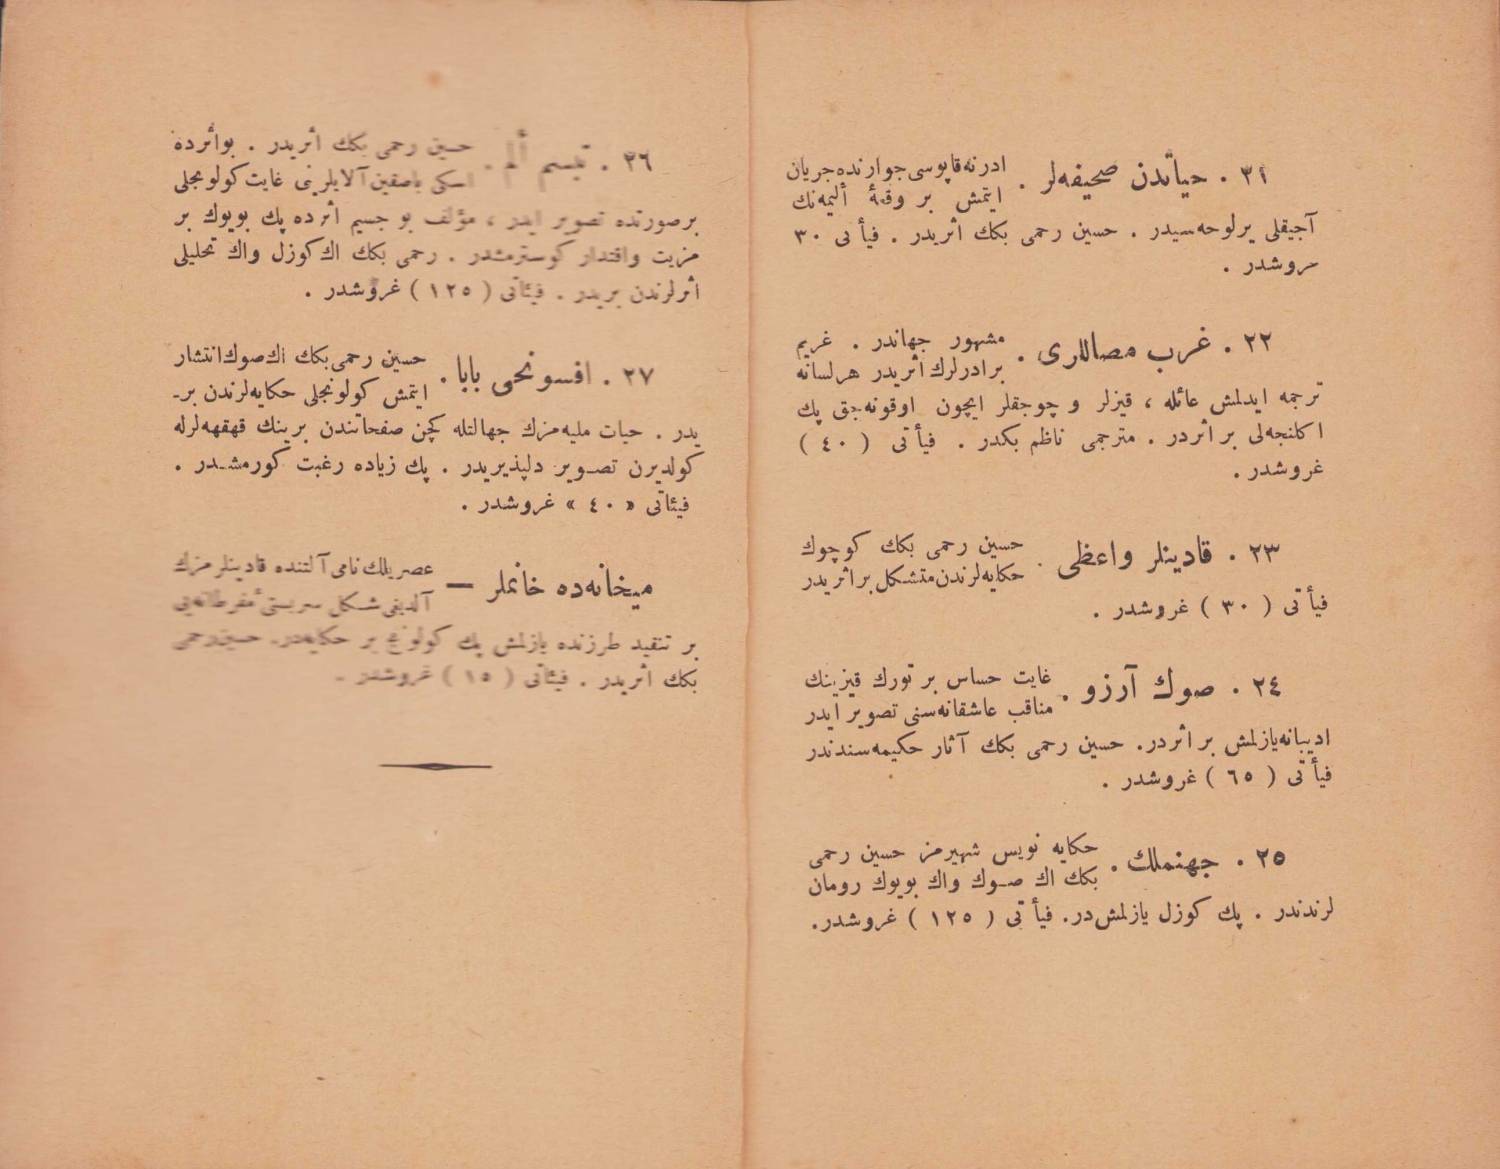 ٣١ . حياتدن صحيفه‌لر . ادرنه‌قاپوسی جوارنده جريان
ايتمش بر وقعهٔ أليمه‌نك
آجيقلی برلوحه‌سيدر . حسين رحمی بكك أثريدر . فيأتی ٣٠
غروشدر .
٢٢ . غرب مصاللری . مشهور جهاندر . غريم
برادرلرك أثريدر هرلسانه
ترجمه ايدلمش عائله ، قيزلر و چوجقلر ايچون اوقونه‌جق پك
اكلنجه‌لی بر اثردر . مترجمی ناظم بكدر . فيأتی ( ٤٠ )
غروشدر .
٢٣ . قادينلر واعظی . حسين رحمی بكك كوچوك
حكايه‌لرندن متشكل بر اثريدر
فيأتی ( ٣٠ ) غروشدر .
٢٤ . صوك آرزو . غايت حساس بر تورك قيزينك
مناقب عاشقانه‌سنی تصوير ايدر
اديبانه يازلمش بر اثردر. حسين رحمی بكك آثار حكيمه‌سندندر
فيأتی ( ٦٥ ) غروشدر .
٢٥ . جهنملك . حكايه نويس شهيرمز حسين رحمی
بكك اك صوك واك بويوك رومان
لرندندر . پك كوزل يازلمش‌در. فيأتی ( ١٢٥ ) غروشدر.
٢٦ . تبسم ألم . حسين رحمی بكك اثريدر . بواثرده
اسكی باصقين آلايلرينی غايت كولونجلی
برصورتده تصوير ايدر ، مؤلف بو جسيم اثرده پك بويوك بر
مزيت واقتدار كوسترمشدر . رحمی بكك اك كوزل واك تحليلی
اثرلرندن بريدر . فيئاتی ( ١٢٥ ) غروشدر .
٢٧ . افسونجی بابا . حسين رحمی بكك اك صوك انتشار
ايتمش كولونجلی حكايه‌لرندن بر-
يدر . حيات مليه‌مزك جهالتله كچن صفحاتندن برينك قهقهه‌لرله
كولديرن تصوير دلپذيريدر . پك زياده رغبت كورمشدر .
فيئاتی « ٤٠ » غروشدر .
ميخانه‌ده خانملر — عصريلك نامی آلتنده قادينلرمزك
آلديغی شكل سربستئ مفرطانه‌يی
بر تنقيد طرزنده يازلمش پك كولونج بر حكايه‌در. حسين رحمی
بكك اثريدر . فيئاتی ( ١٥ ) غروشدر .